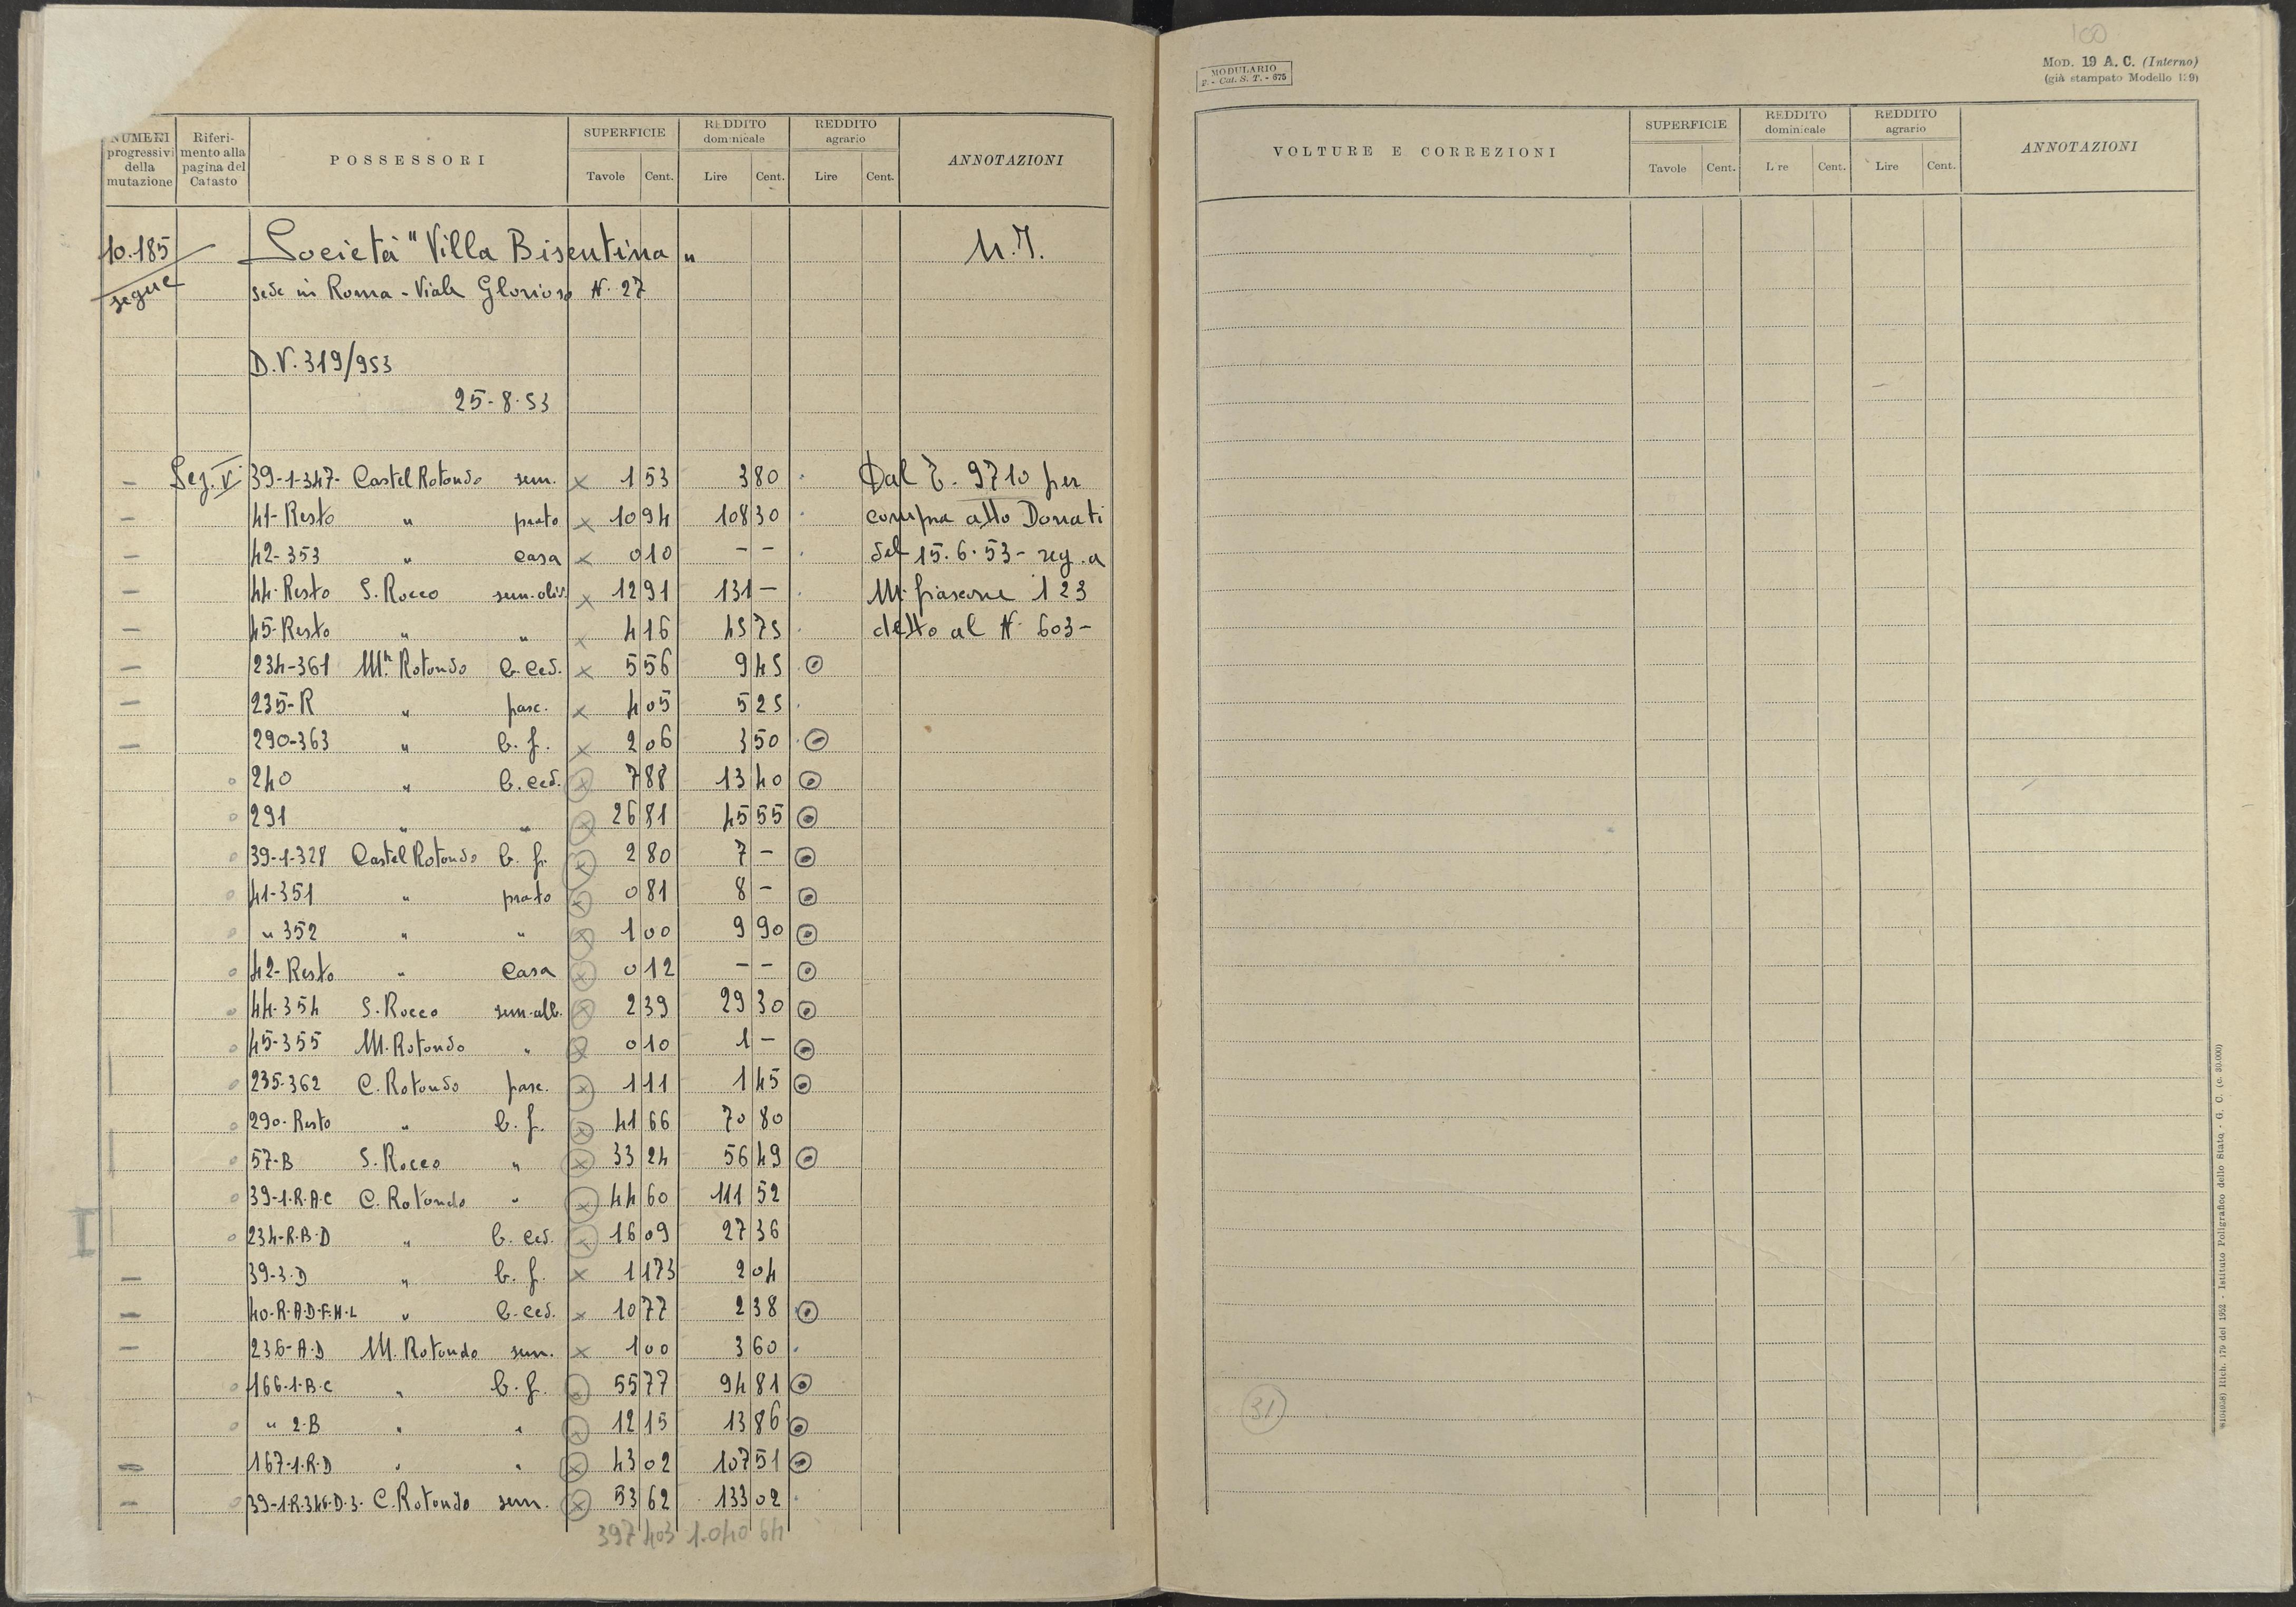 NUMERI progressivi della mutazione | Riferimento alla pagina del Catasto | POSSESSORI | SUPERFICIE Tavole Cent. | REDDITO dominicale Lire Cent. | REDDITO agrario Lire Cent. | ANNOTAZIONI
10.185 Società "Villa Bisentina" N.I.
segue sede in Roma - Viale Glorioso N. 27
D.V. 319/953
25-8-53
Sez. V 39-1-347- Castel Rotondo sem. x 1 53 3 80 Dal P. 9710 per
41- Resto " prato x 10 94 108 30 compra atto Donati
42-353 " casa x 0 10 - - del 15.6.53 - reg. a
44- Resto S. Rocco sem. oliv. x 12 91 131 - M. fiascone 123
45- Resto " " x 4 16 45 75 detto al N. 603-
234-361 M. Rotondo b. ced. x 5 56 9 45
235-R " pasc. x 4 05 5 25
290-363 " b. f. x 2 06 3 50
240 " b. ced. x 7 88 13 40
291 " " x 26 81 45 55
39-1-328 Castel Rotondo b. f. x 2 80 7 -
41-351 " prato x 0 81 8 -
" 352 " " x 1 00 9 90
42- Resto " casa x 0 12 - -
44-354 S. Rocco sem. alb. x 2 39 29 30
45-355 M. Rotondo " x 0 10 1 -
235-362 C. Rotondo pasc. x 1 11 1 45
290- Resto " b. f. x 41 66 70 80
57-B S. Rocco " x 33 24 56 49
39-1-R-A-C C. Rotondo " x 44 60 111 52
234-R-B-D " b. ced. x 16 09 27 36
39-3-D " b. f. x 1 173 2 04
40-R-A-D-F-H-L " b. ced. x 10 77 2 38
236-A-D M. Rotondo sem. x 1 00 3 60
166-1-B-C " b. f. x 55 77 94 81
" 2-B " " x 12 15 13 86
167-1-R-D " " x 43 02 107 51
39-1-R-346-D-3- C. Rotondo sem. x 53 62 133 02
397 403 1.040 64
I
100
MODULARIO
F. - Cat. S. T. - 675
MOD. 19 A. C. (Interno)
(già stampato Modello 139)
VOLTURE E CORREZIONI | SUPERFICIE Tavole Cent. | REDDITO dominicale L re Cent. | REDDITO agrario Lire Cent. | ANNOTAZIONI
31
Rich. 179 del 1952 - Istituto Poligrafico dello Stato - G. C. (c. 30.000)